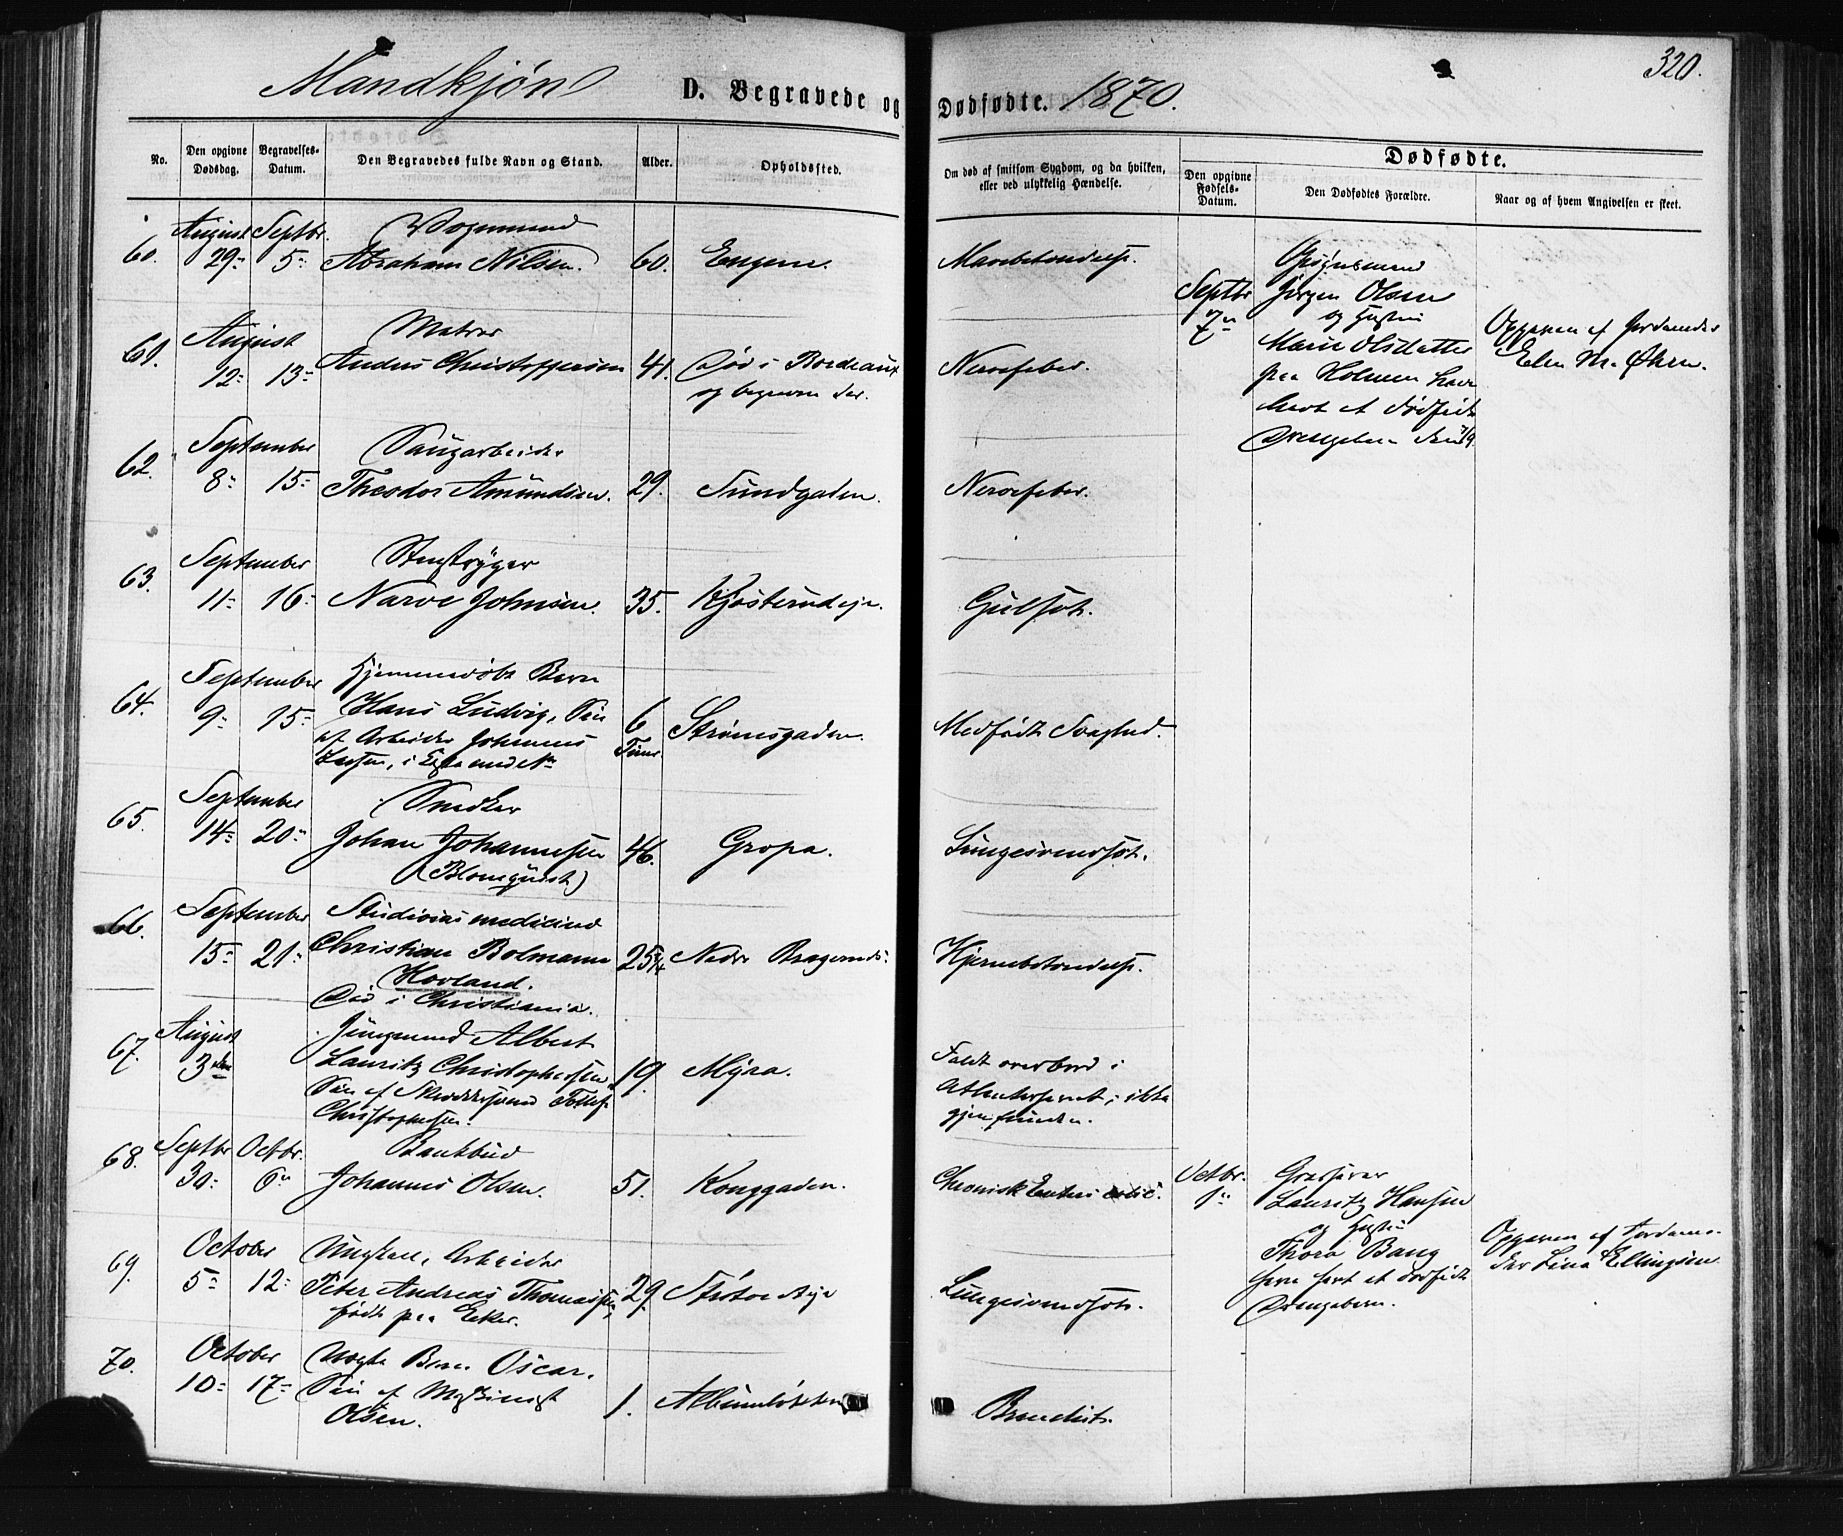 Mandkjøn D. Begravede og Dødfødte. 1870. 320.
No. Den opgivne Dødsdag. Begravelses-Datum. Den Begravedes fulde Navn og Stand. Alder. Opholdssted. Om død af smitsom Sygdom, og da hvilken, eller ved ulykkelig Hændelse.
Dødfødte.
Den opgivne Fødsels-Datum. Den Dødfødtes Forældre. Naar og af hvem Angivelsen er skeet.
August Septbr. Vognmand
60. 29 5 Abraham Nilsen. 60. Engene. Mavebetændelse.
August Matros
61. 12 13 Anders Christoffersen 41. Død i Bordeaux Nervefeber.
og begraven der.
Septbr 7
Jørgen Olsen
og Hustru
Marie Olsdatter
paa Holmen have
havt et dødfødt
Drengebarn den 7/9
Opgaven af Jordemoder
Elen M. Øhrn.
September Saugarbeider
62. 8 15 Theodor Amundsen. 29. Tundgaden. Nervefeber.
September
63. 11 16 Narve Johnsen. 35. Gulsot.
September Hjemmedøbt Barn
64. 9 15 Hans Ludvig, Søn 6 Strømsgaden. Medfødt Svaghed.
af Arbeider Johannes Timer
September Snedker
65. 14 20 Johan Johannesen 46. Gropa. Lungesvindsot.
(Blomquist)
September Studiosus medicinæ
66. 15 21 Christian Bolmann 25 3/4 Nedre Bragernes Hjernebetændelse.
Hovland.
Død i Christiania.
August Jungmand Albert
67. 3die Lauritz Christophersen 19. Myra. Faldt overbord i
Søn af Christophersen. Atlanterhavet, ikke
gjenfunden.
Septbr Octbr. Bankbud
68. 30 6 Johannes Olsen. 51. Konggaden. Chronisk
Octbr. 1
Lauritz Hansen
og Hustru
Thora Bang
have havt et dødfødt
Drengebarn.
Opgaven af Jordemo-
der Lina Ellingsen.
October Ungkarl, Arbeider
69. 5 12 Peter Andreas Thomassen, 29. Lungesvindsot.
født paa Eker.
October Barn Oscar.
70. 10 17 Søn af Maskinist 1. Bronchit.
Olsen.